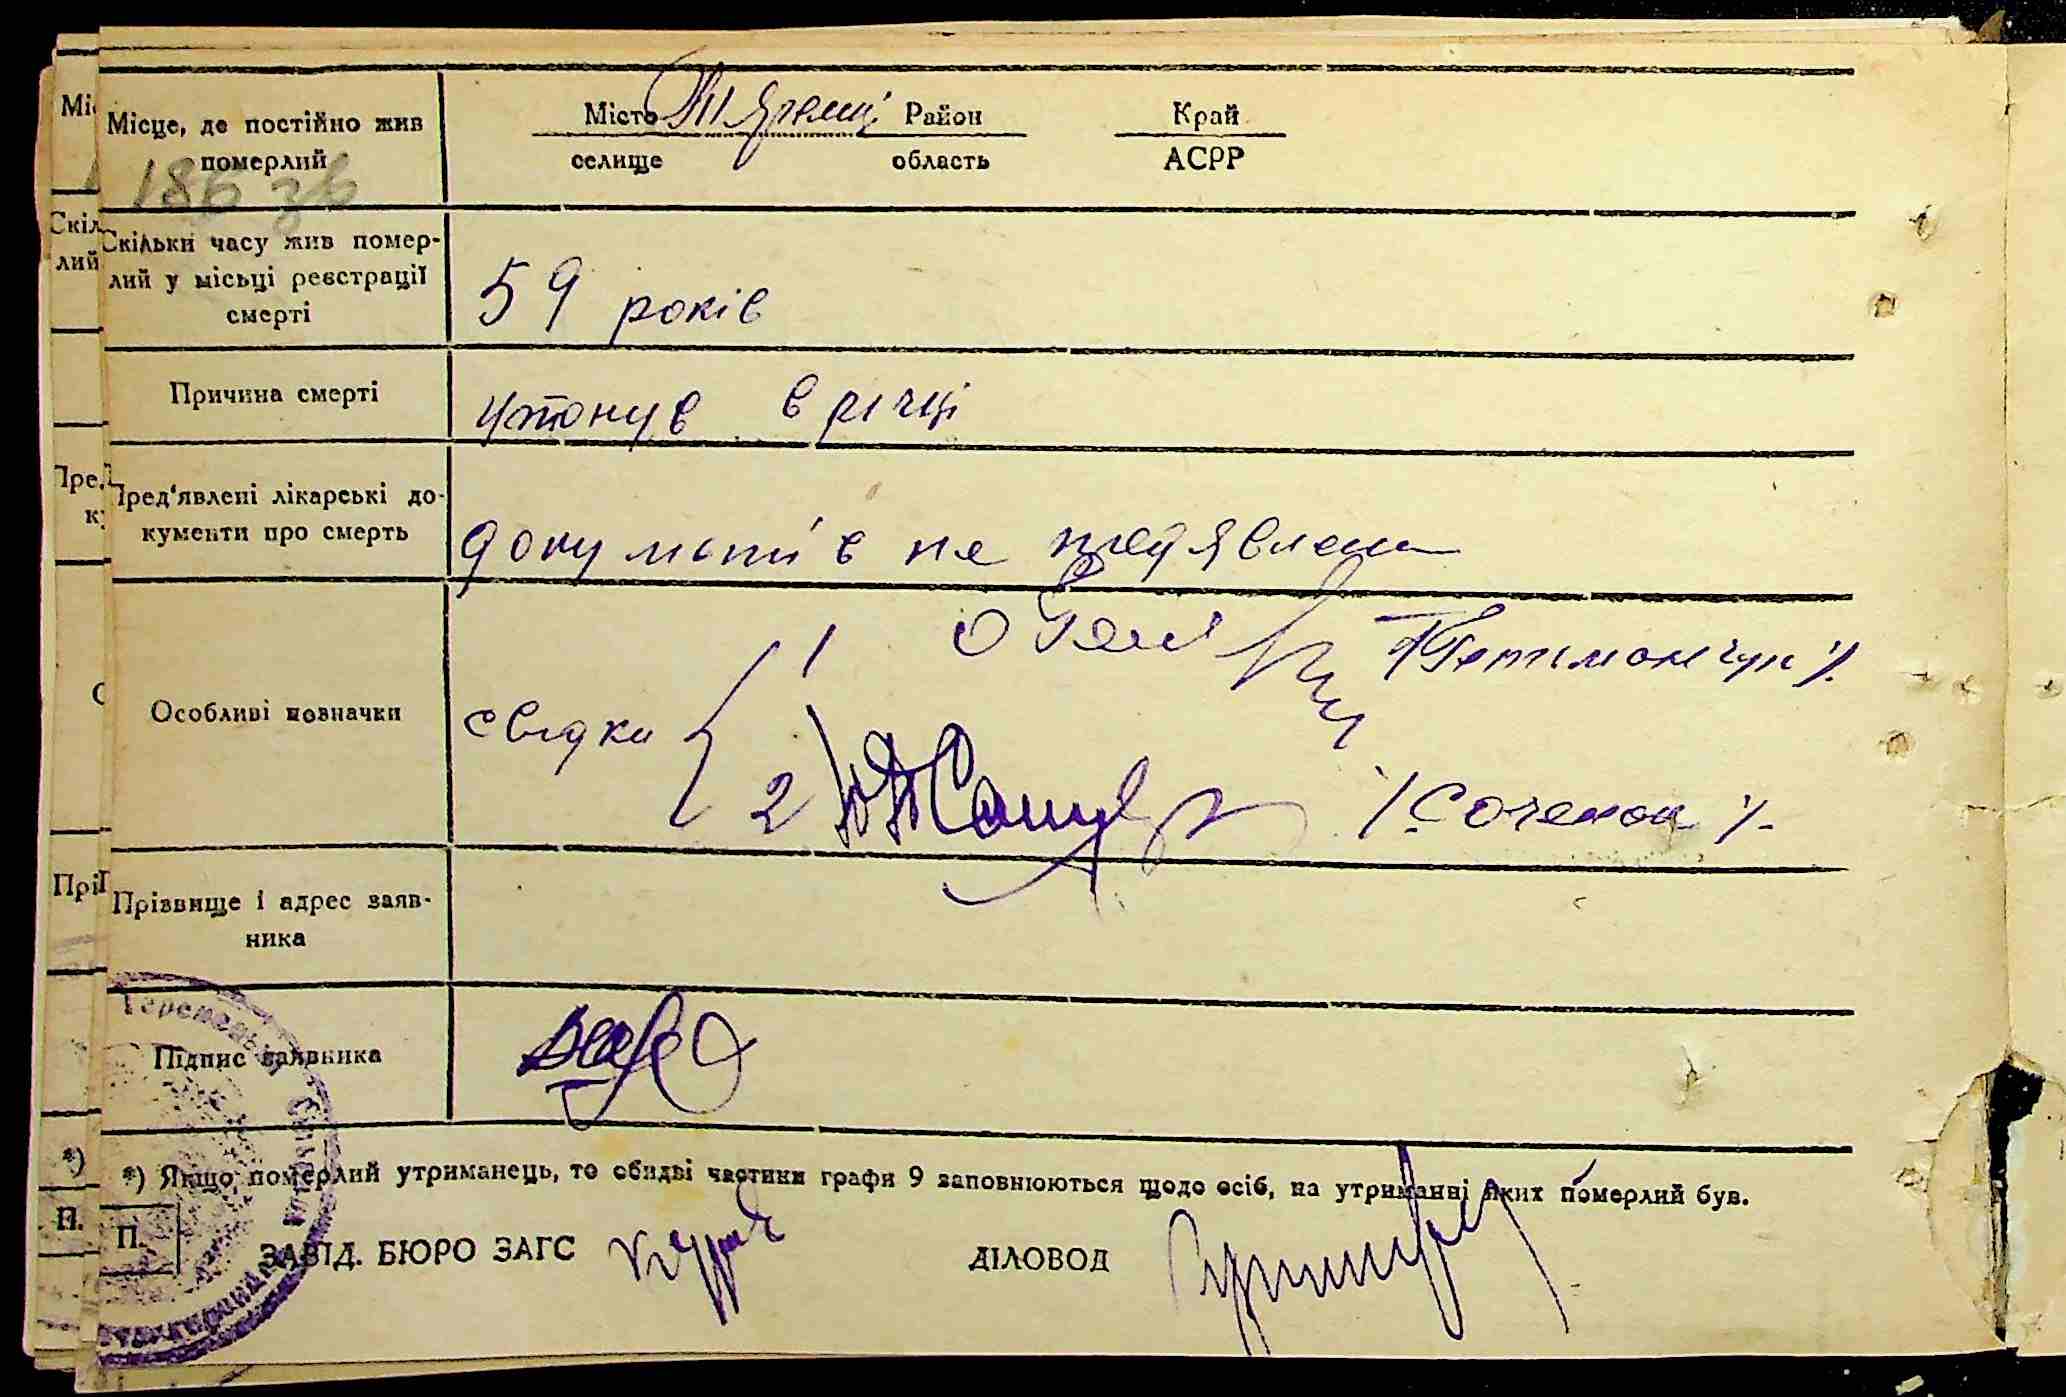 Місце, де постійно жив
померлий
Місто Район Край
селище область АСРР
186 зв
Скільки часу жив помер-
лий у місьці реєстрації
смерті
59 років
Причина смерті
утонув в річці
Пред'явлені лікарські до-
кументи про смерть
документів не предявлено
Особливі позначки
свідки { 1
2 /Соченок/.
Прізвище і адрес заяв-
ника
Підпис заявника
*) Якщо померлий утриманець, то обидві частини графи 9 заповнюються щодо осіб, на утриманні яких померлий був.
П.
ЗАВІД. БЮРО ЗАГС ДІЛОВОД